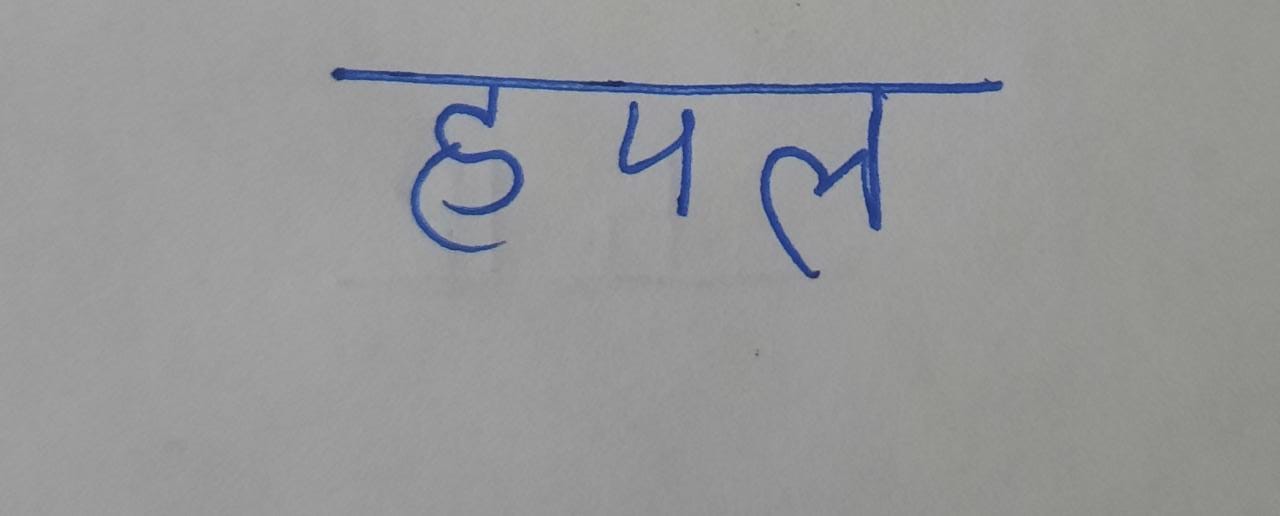 हपल